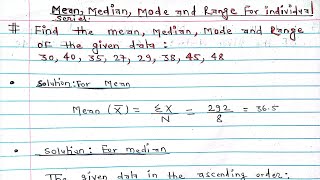 Mean, Median, Mode and Range for individual
series.
# Find the mean, Median, Mode, and Range
of the given data:
30, 40, 35, 27, 29, 38, 45, 48
• Solution: For Mean
Mean (X̄) = ΣX/N = 292/8 = 36.5
• Solution: For median
The given data in the ascending order: